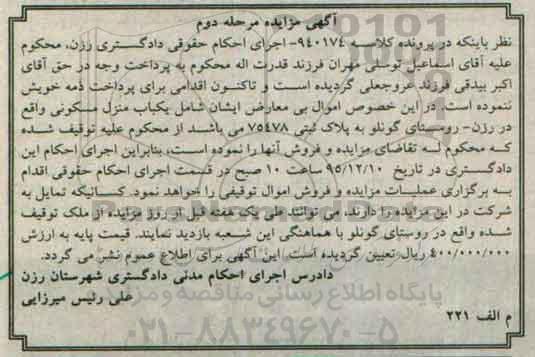 آگهی مزایده مرحله دوم
نظر باینکه در پرونده کلاسه ۹۴۰۱۷۴- اجرای احکام حقوقی دادگستری رزن، محکوم
علیه آقای اسماعیل توسلی مهران فرزند قدرت اله محکوم به پرداخت وجه در حق آقای
اکبر بیدقی فرزند عروجعلی گردیده است و تاکنون اقدامی برای پرداخت ذمه خویش
ننموده است. در این خصوص اموال بی معارض ایشان شامل یکباب منزل مسکونی واقع
در رزن- روستای گونلو به پلاک ثبتی ۷۵۴۷۸ می باشد از محکوم علیه توقیف شده
که محکوم له تقاضای مزایده و فروش آنها را نموده است، بنابراین اجرای احکام این
دادگستری در تاریخ ۹۵/۱۲/۱۰ ساعت ۱۰ صبح در قسمت اجرای احکام حقوقی اقدام
به برگزاری عملیات مزایده و فروش اموال توقیفی را خواهد نمود. کسانیکه تمایل به
شرکت در این مزایده را دارند، می توانند طی یک هفته قبل از روز مزایده از ملک توقیف
شده واقع در روستای گونلو با هماهنگی این شعبه بازدید نمایند. قیمت پایه به ارزش
۴۰۰/۰۰۰/۰۰۰ ریال تعیین گردیده است. این آگهی برای اطلاع عموم نشر می گردد.
دادرس اجرای احکام مدنی دادگستری شهرستان رزن
علی رئیس میرزایی
م الف ۲۲۱
پایگاه اطلاع رسانی مناقصه و مزایده
۰۲۱-۸۸۳۴۹۶۷۰-۵